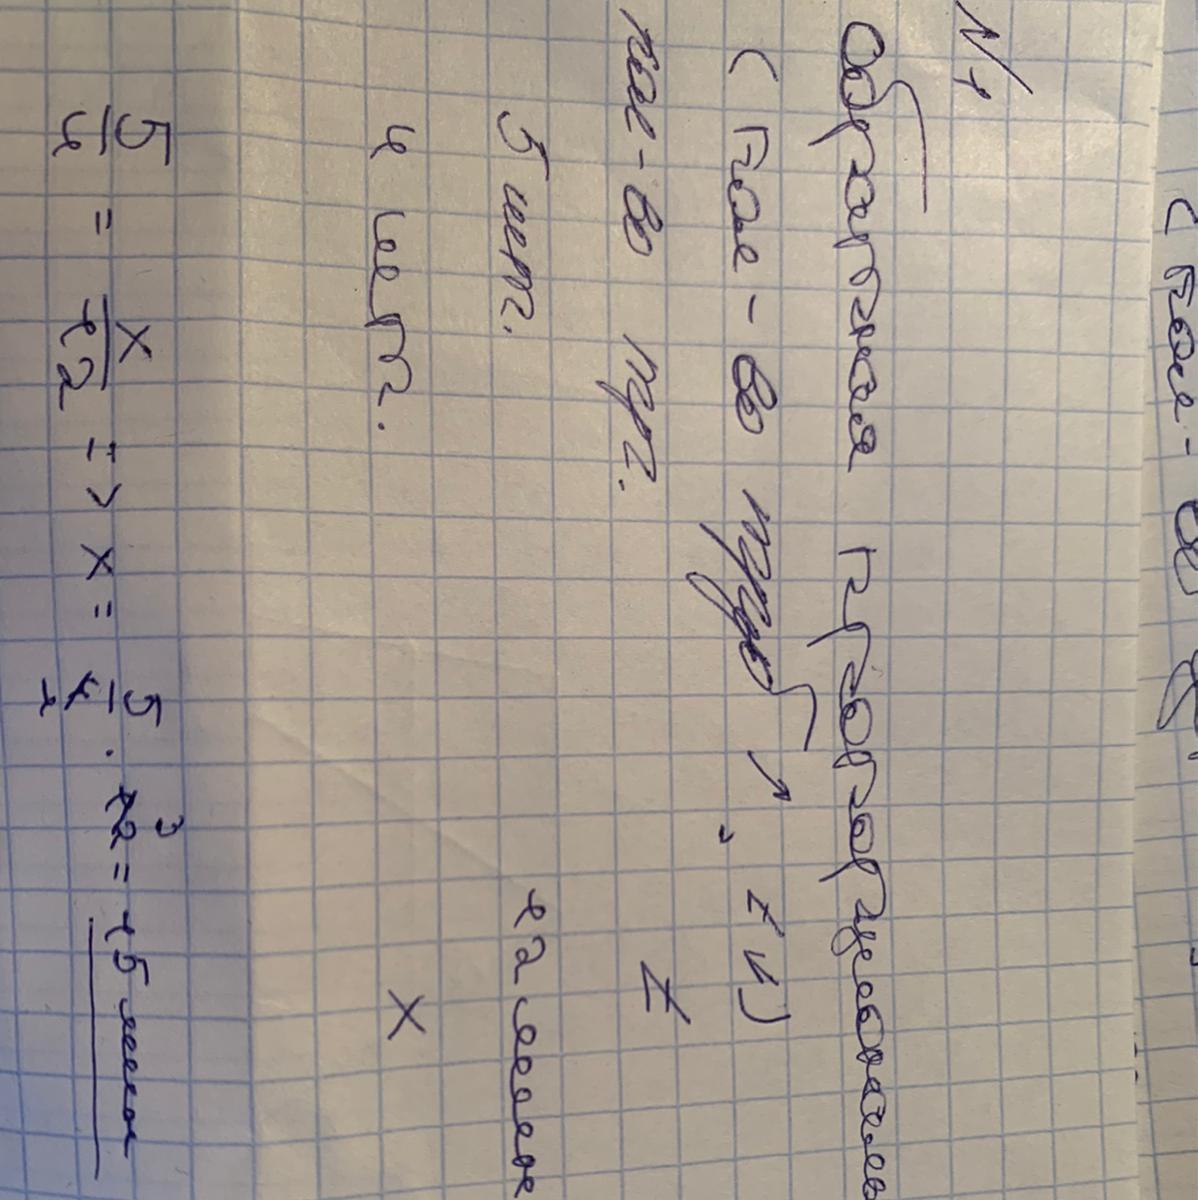 N1
обратная пропорциональ
(кол-во труб → , t и)
кол-во тр. t
5 шт. 12 мин
4 шт. x
5/4 = x/12 => x = 5/4 · 12 = 15 мин
(кол-во